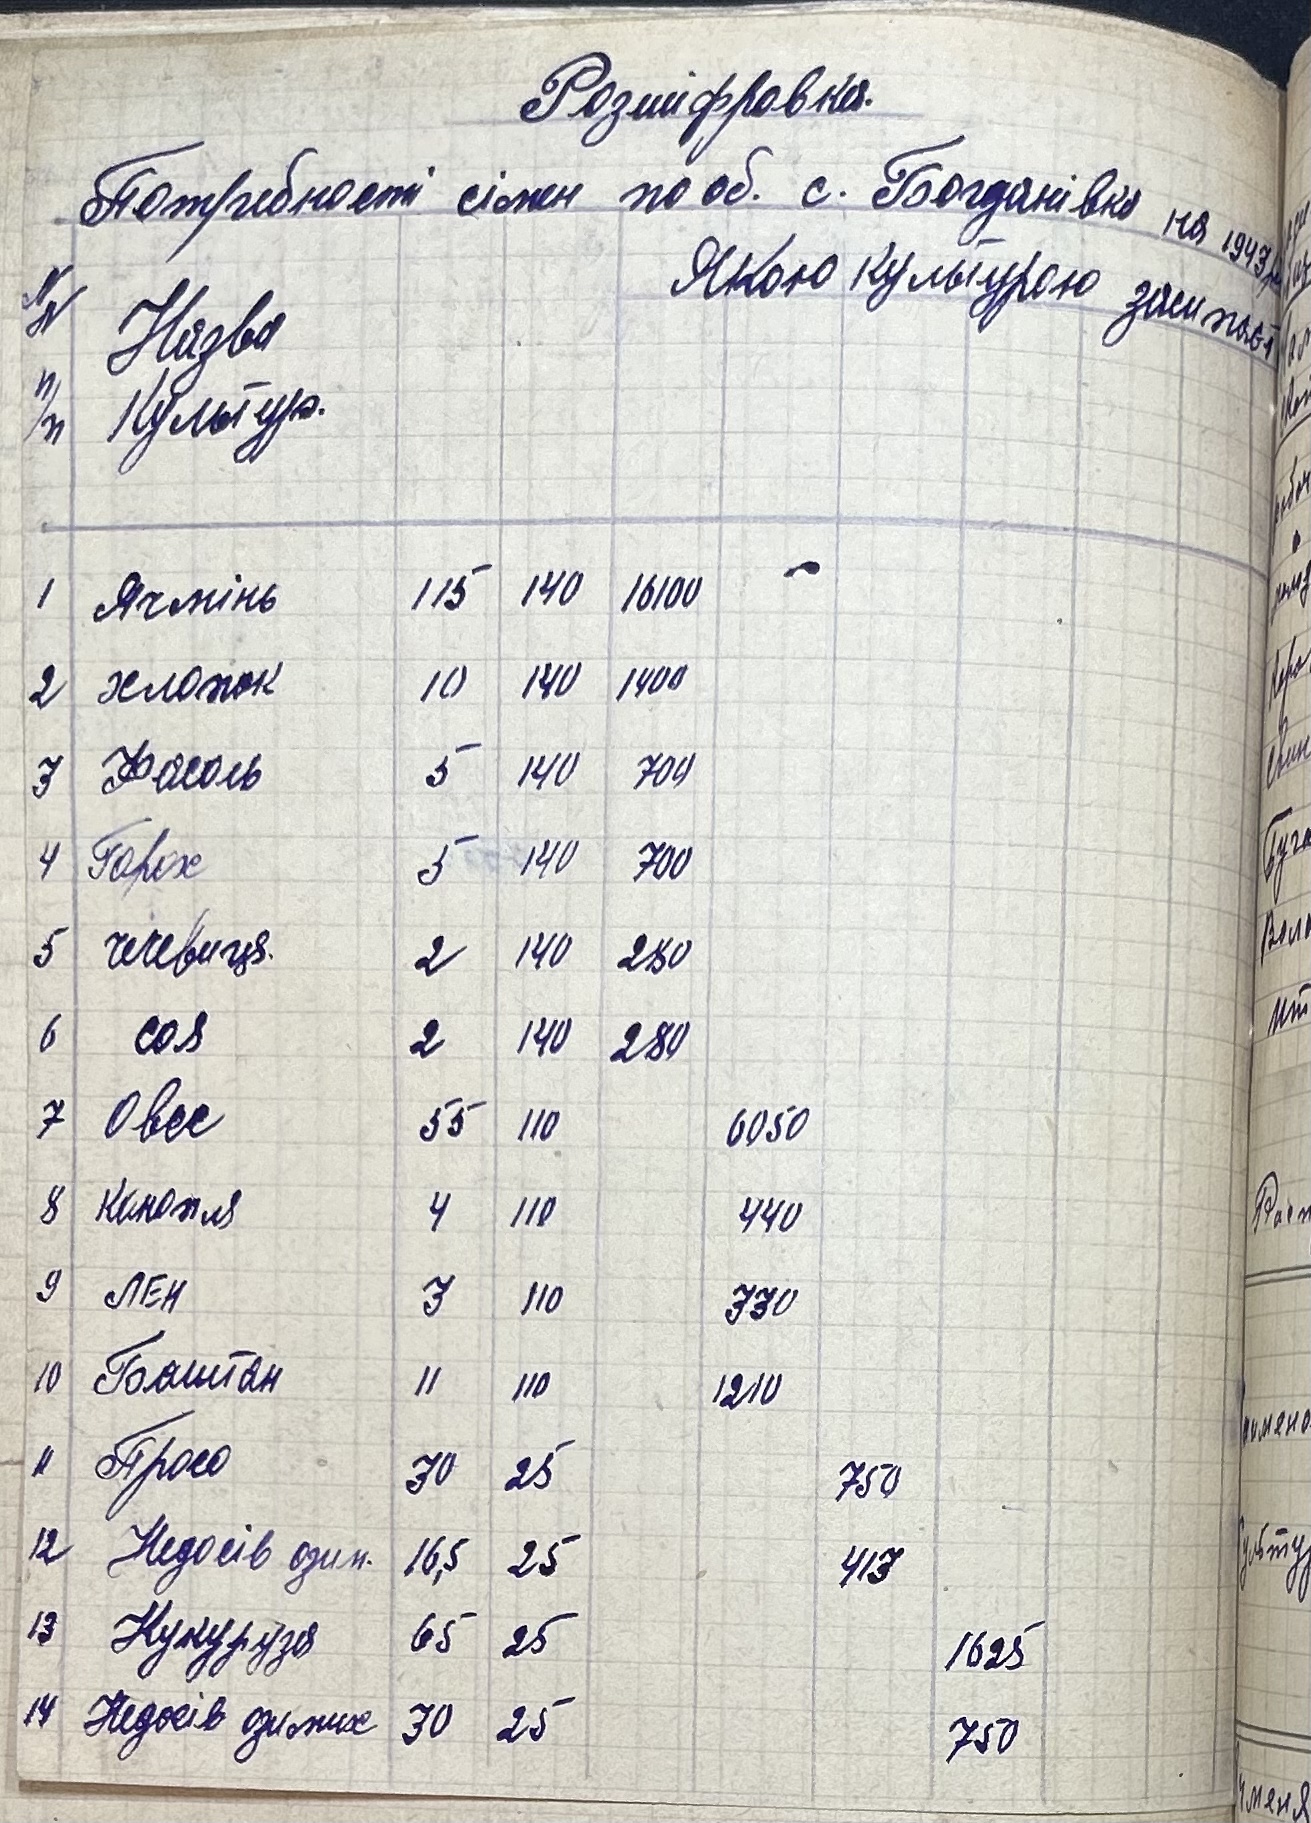 Розшіфровка.
Потребності сімен по об. с. Богданівка на 1943 р.
№№ п/п Назва Культур. Якою культурою засипаєт
1 Ячмінь 115 140 16100
2 хлопок 10 140 1400
3 Фасоль 5 140 700
4 Горох 5 140 700
5 чечевиця. 2 140 280
6 соя 2 140 280
7 Овес 55 110 6050
8 Канопля 4 110 440
9 ЛЕН 3 110 330
10 Баштан 11 110 1210
11 Просо 30 25 750
12 Недосів озим. 16,5 25 413
13 Кукуруза 65 25 1625
14 Недосів озимих 30 25 750